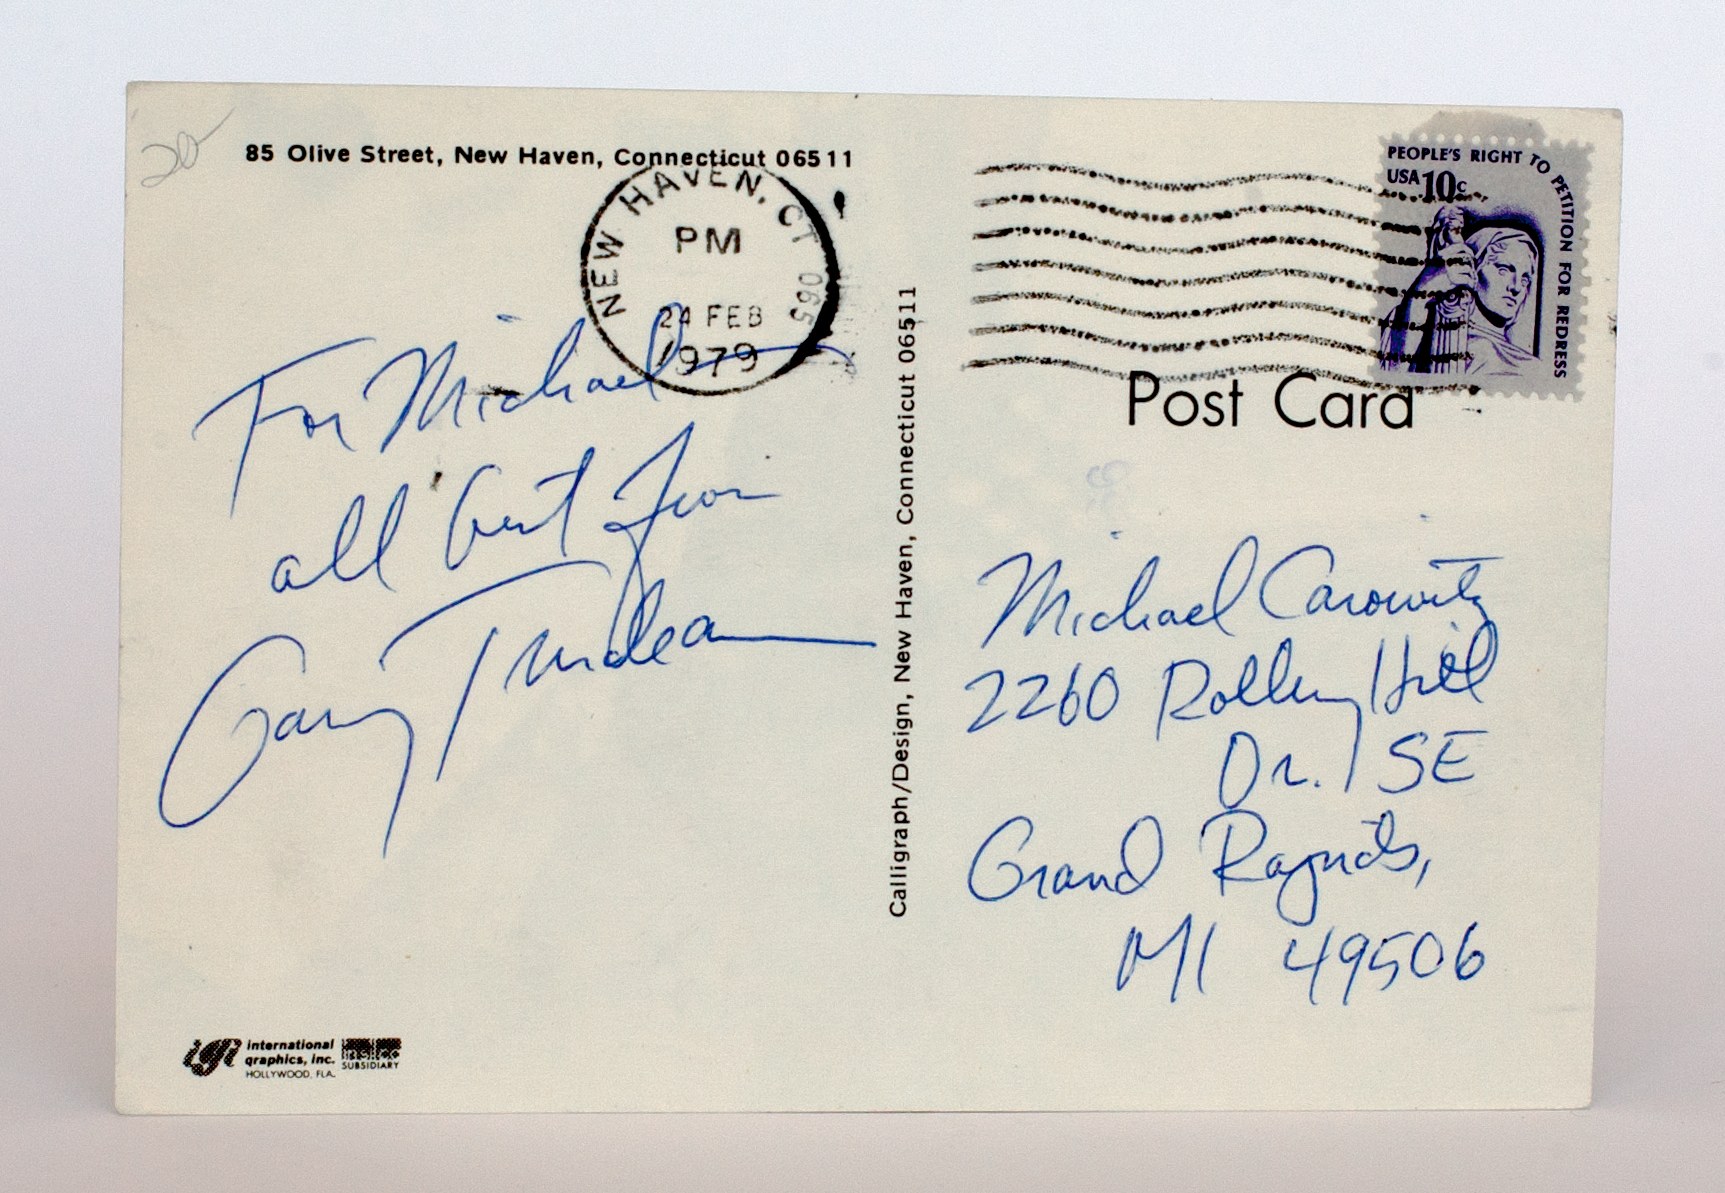 20-
85 Olive Street, New Haven, Connecticut 06511
NEW HAVEN, CT 065
PM
24 FEB
1979
For Michael
all best from
Garry Trudeau
international
graphics, inc.
HOLLYWOOD, FLA.
SUBSIDIARY
Calligraph/Design, New Haven, Connecticut 06511
PEOPLE'S RIGHT TO PETITION FOR REDRESS
USA 10c
Post Card
Michael Carowitz
2260 Rolling Hill
Dr. SE
Grand Rapids,
MI 49506